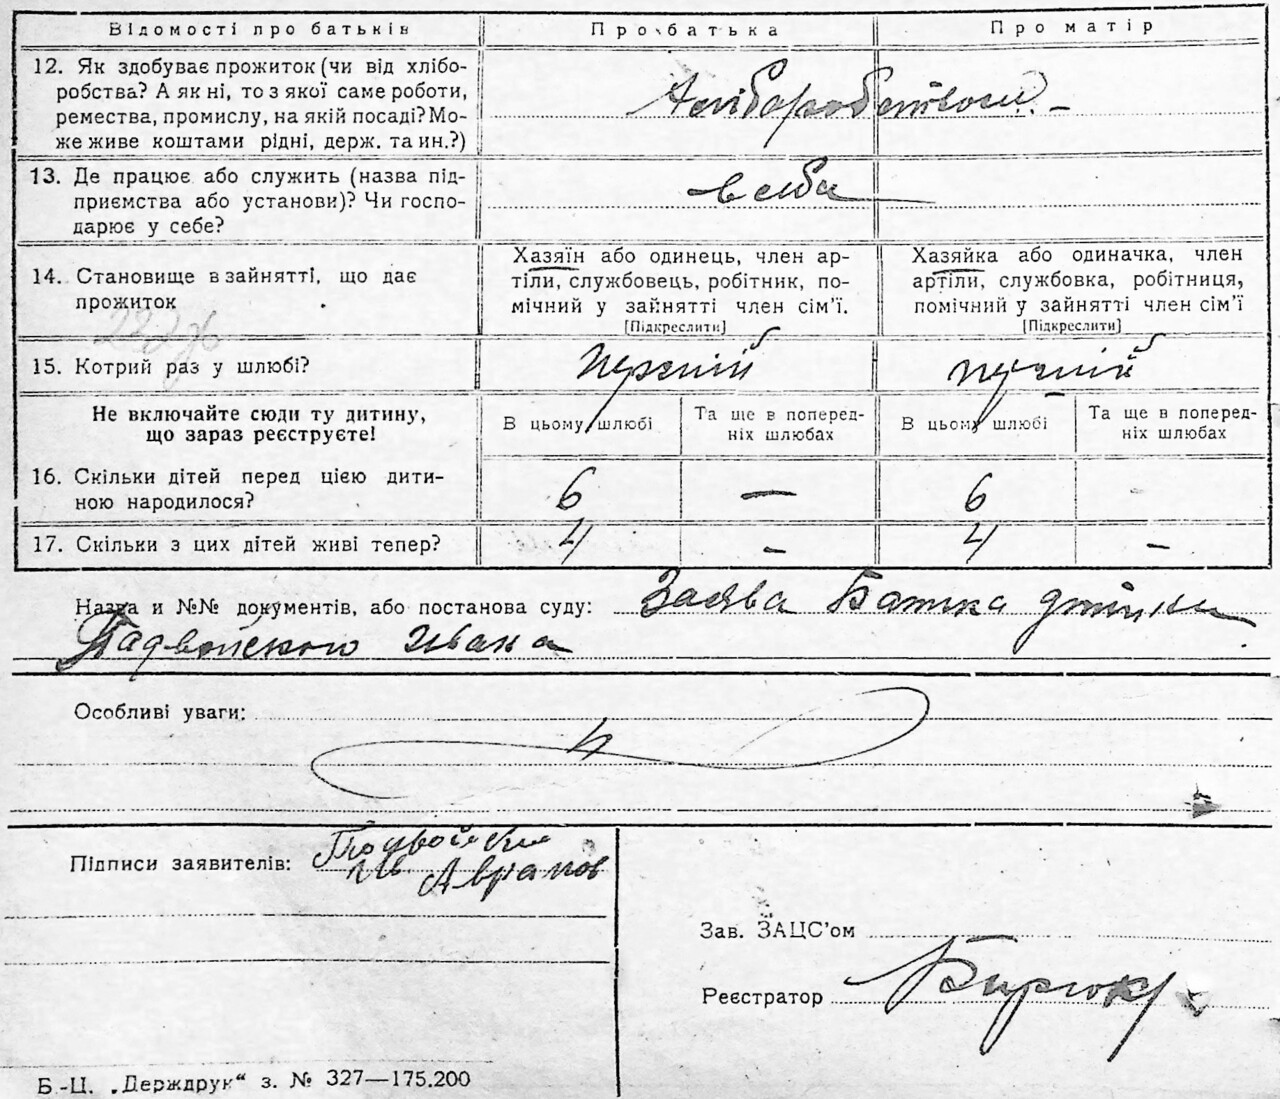 Відомості про батьків Про батька Про матір
12. Як здобуває прожиток (чи від хлібо-
робства? А як ні, то з якої саме роботи,
ремества, промислу, на якій посаді? Мо-
же живе коштами рідні, держ. та ин.?)
Хліборобством. –
13. Де працює або служить (назва під-
приємства або установи)? Чи госпо-
дарює у себе?
в себе
14. Становище в зайнятті, що дає
прожиток
Хазяїн або одинець, член ар-
тіли, службовець, робітник, по-
мічний у зайнятті член сім’ї.
[Підкреслити]
Хазяйка або одиначка, член
артіли, службовка, робітниця,
помічний у зайнятті член сім’ї
[Підкреслити]
15. Котрий раз у шлюбі? перший перший
Не включайте сюди ту дитину,
що зараз реєструєте!
В цьому шлюбі
Та ще в поперед-
ніх шлюбах
В цьому шлюбі
Та ще в поперед-
ніх шлюбах
16. Скільки дітей перед цією дити-
ною народилося?
6 – 6 -
17. Скільки з цих дітей живі тепер? 4 – 4 –
Назва и №№ документів, або постанова суду: Заява Батька
Подвойского Ивана
Особливі уваги:
Підписи заявителів: Подвойский
Ив. Аврамов
Зав. ЗАЦС’ом
Реєстратор Бирюк
Б.-Ц. „Держдрук“ з. № 327—175.200